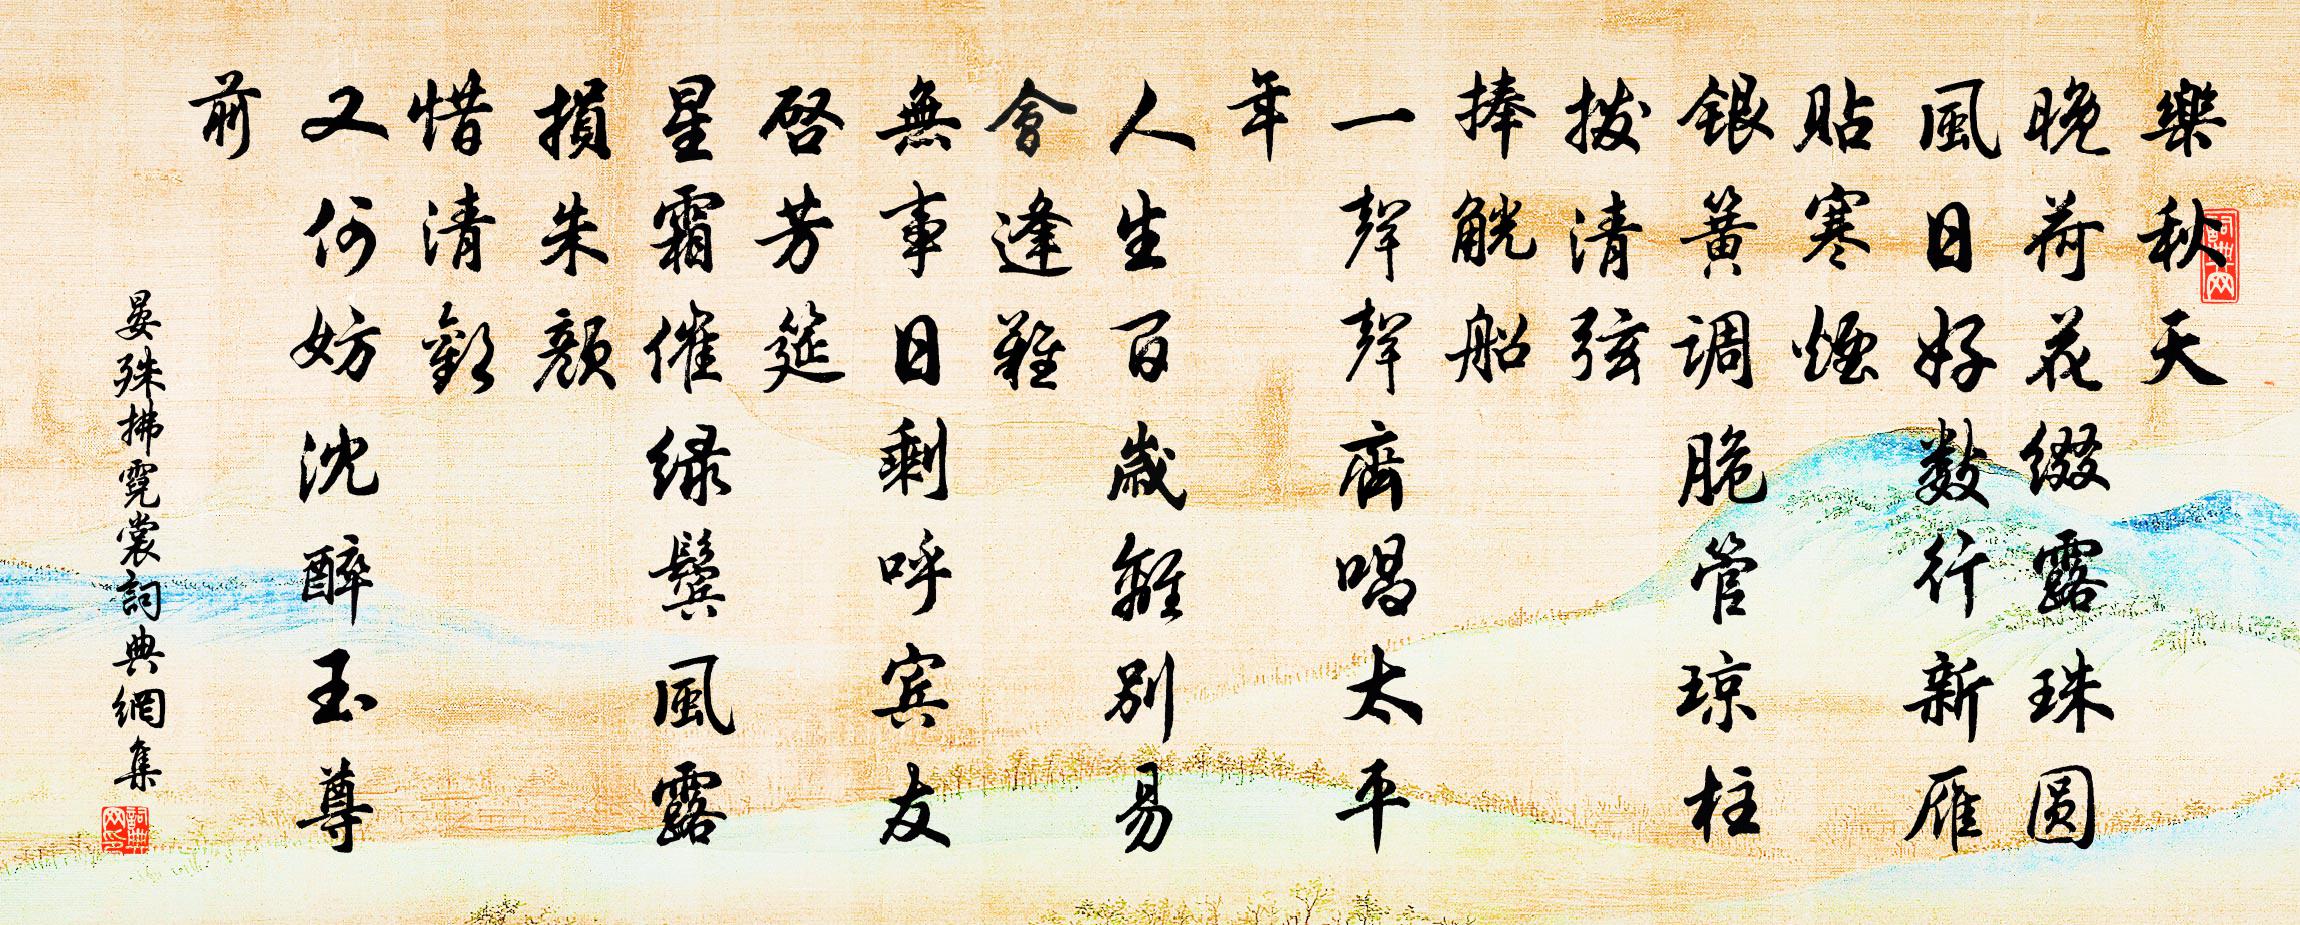 樂秋天
晚荷花綴露珠圆
風日好數行新雁
貼寒煙
銀簧調脆管琼柱
拨清弦
捧觥船
一聲聲齊唱太平
年
人生百歲離别易
會逢難
無事日剩呼宾友
啓芳筵
星霜催绿鬓風露
損朱颜
惜清歡
又何妨沈醉玉尊
前
晏殊拂霓裳詞典網集
詞典网
詞典网印